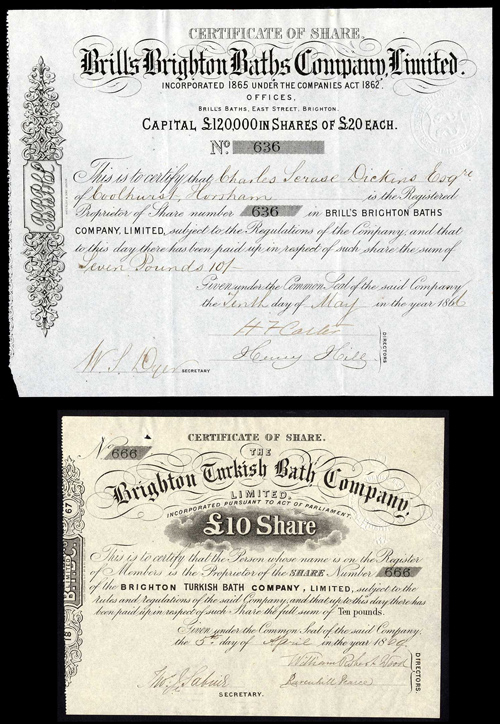 CERTIFICATE OF SHARE.
Brills Brighton Baths Company, Limited.
INCORPORATED 1865 UNDER THE COMPANIES ACT 1862.
OFFICES,
BRILL'S BATHS, EAST STREET, BRIGHTON.
CAPITAL £120,000 IN SHARES OF £20 EACH.
No. 636
This is to certify that Charles Scrase Dickins Esqre
of Coolhurst, Horsham is the Registered
Proprietor of Share number 636 in BRILL'S BRIGHTON BATHS
COMPANY, LIMITED, subject to the Regulations of the Company; and that
to this day there has been paid up in respect of such share the sum of
Seven Pounds 10/-
Given under the Common Seal of the said Company
the Tenth day of May in the year 1866
H F Carter
Henry Hill
DIRECTORS
W. S. Dyer SECRETARY
BBBCL
No 666
CERTIFICATE OF SHARE.
THE
Brighton Turkish Bath Company,
LIMITED.
INCORPORATED PURSUANT TO ACT OF PARLIAMENT.
£10 Share
This is to certify that the Person whose name is on the Register
of Members is the Proprietor of the SHARE Number 666
of the BRIGHTON TURKISH BATH COMPANY, LIMITED, subject to the
rules and regulations of the said Company, and that up to this day there has
been paid up in respect of such Share the full sum of Ten pounds.
Given under the Common Seal of the said Company,
the 5th day of April in the year 1869
DIRECTORS
SECRETARY.
18
67